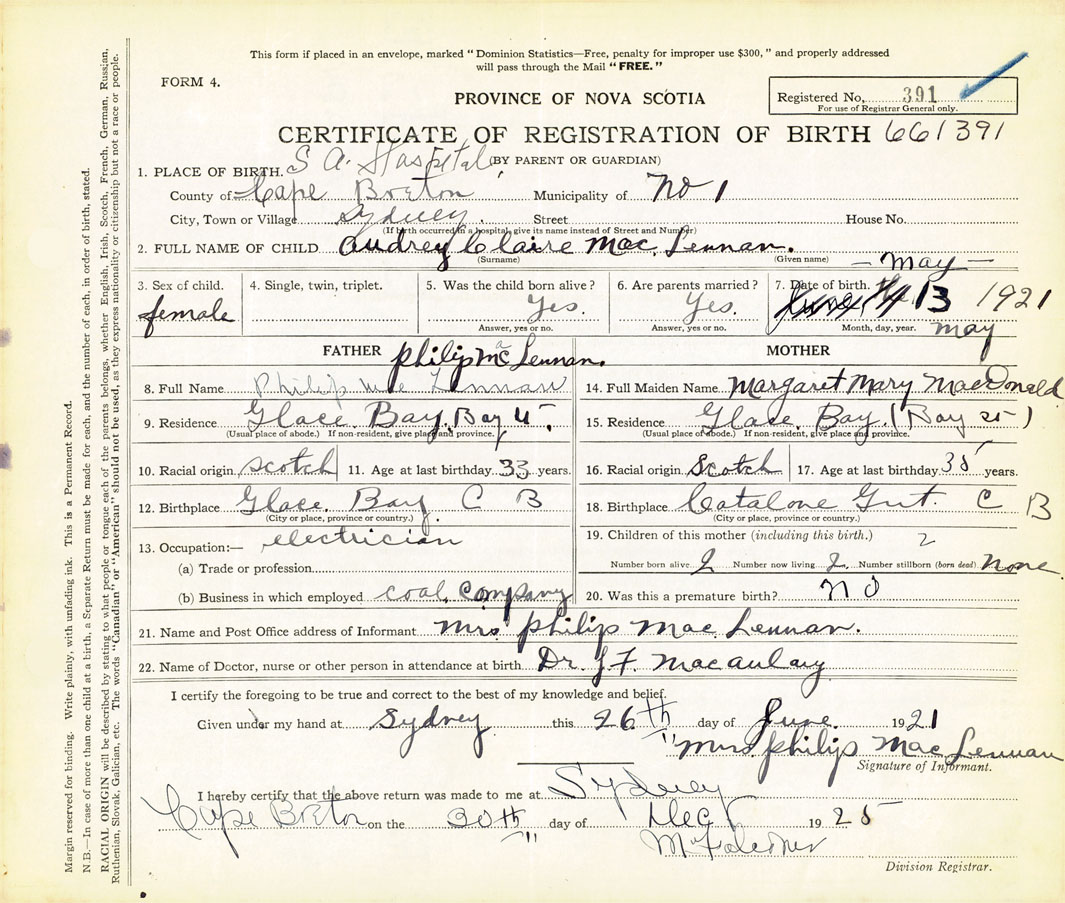 This form if placed in an envelope, marked "Dominion Statistics—Free, penalty for improper use $300," and properly addressed
will pass through the Mail "FREE."
FORM 4.
PROVINCE OF NOVA SCOTIA
Registered No. 391
For use of Registrar General only.
CERTIFICATE OF REGISTRATION OF BIRTH 661391
(BY PARENT OR GUARDIAN)
1. PLACE OF BIRTH. S A. Hospital
County of Cape Breton Municipality of No 1
City, Town or Village Sydney. Street House No.
(If birth occurred in a hospital, give its name instead of Street and Number)
2. FULL NAME OF CHILD Audrey Claire Mac Lennan.
(Surname) (Given name)
— May —
3. Sex of child. 4. Single, twin, triplet. 5. Was the child born alive? 6. Are parents married? 7. Date of birth.
female Yes. Yes. 13 1921
Answer, yes or no. Answer, yes or no. Month, day, year. May
FATHER Philip Mac Lennan. MOTHER
8. Full Name Philip Mc Lennan 14. Full Maiden Name Margaret Mary MacDonald
9. Residence Glace Bay. 15. Residence Glace Bay.
(Usual place of abode.) If non-resident, give place and province. (Usual place of abode.) If non-resident, give place and province.
10. Racial origin Scotch 11. Age at last birthday 33 years. 16. Racial origin Scotch 17. Age at last birthday 35 years.
12. Birthplace Glace Bay C B 18. Birthplace Catalone Gut. C B
(City or place, province or country.) (City or place, province or country.)
13. Occupation:— electrician 19. Children of this mother (including this birth.) 2
(a) Trade or profession Number born alive 2 Number now living 2 Number stillborn (born dead) None
(b) Business in which employed coal company 20. Was this a premature birth? No
21. Name and Post Office address of Informant Mrs Philip Mac Lennan.
22. Name of Doctor, nurse or other person in attendance at birth Dr. J. F. Macaulay
I certify the foregoing to be true and correct to the best of my knowledge and belief.
Given under my hand at Sydney this 26th day of June. 1921
"Mrs Philip Mac Lennan
Signature of Informant.
I hereby certify that the above return was made to me at Sydney
Cape Breton on the 30th day of Dec 1925
Division Registrar.
Margin reserved for binding. Write plainly, with unfading ink. This is a Permanent Record.
N.B.—In case of more than one child at a birth, a Separate Return must be made for each, and the number of each, in order of birth, stated.
RACIAL ORIGIN will be described by stating to what people or tongue each of the parents belongs, whether English, Irish, Scotch, French, German, Russian,
Ruthenian, Slovak, Galician, etc. The words "Canadian" or "American" should not be used, as they express nationality or citizenship but not a race or people.